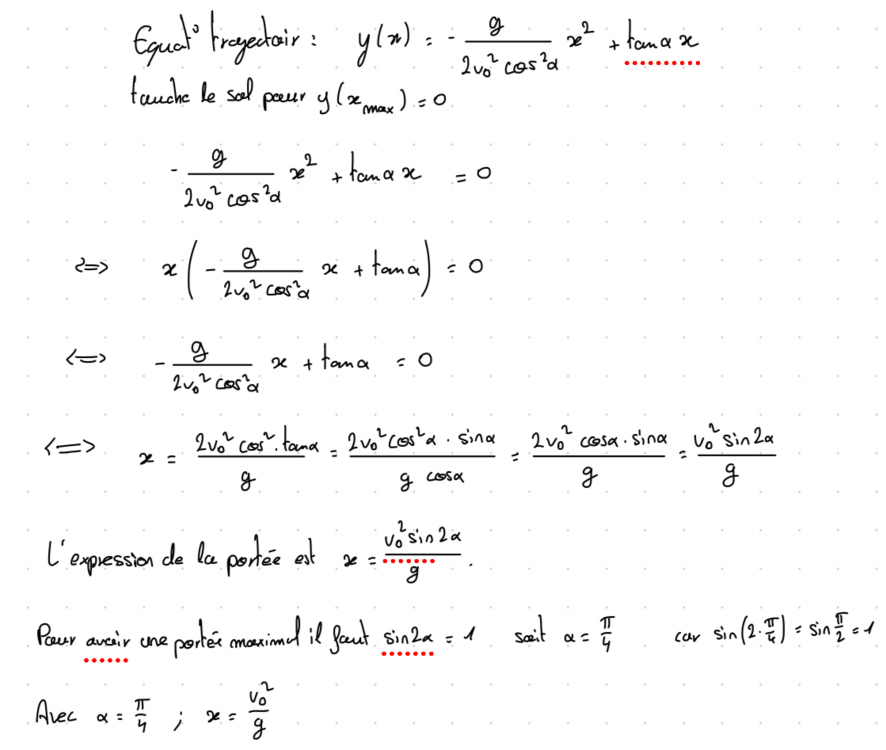 Equat° trajectoir : y(x) = - g / (2v₀² cos²α) x² + tanα x
touche le sol pour y(x_max) = 0
- g / (2v₀² cos²α) x² + tanα x = 0
<=> x ( - g / (2v₀² cos²α) x + tanα ) = 0
<=> - g / (2v₀² cos²α) x + tanα = 0
<=> x = (2v₀² cos² . tanα) / g = (2v₀² cos²α . sinα) / (g cosα) = (2v₀² cosα . sinα) / g = (v₀² sin2α) / g
L'expression de la portée est x = (v₀² sin2α) / g .
Pour avoir une portée maximal il faut sin2α = 1 soit α = π/4 car sin(2.π/4) = sin π/2 = 1
Avec α = π/4 ; x = v₀² / g